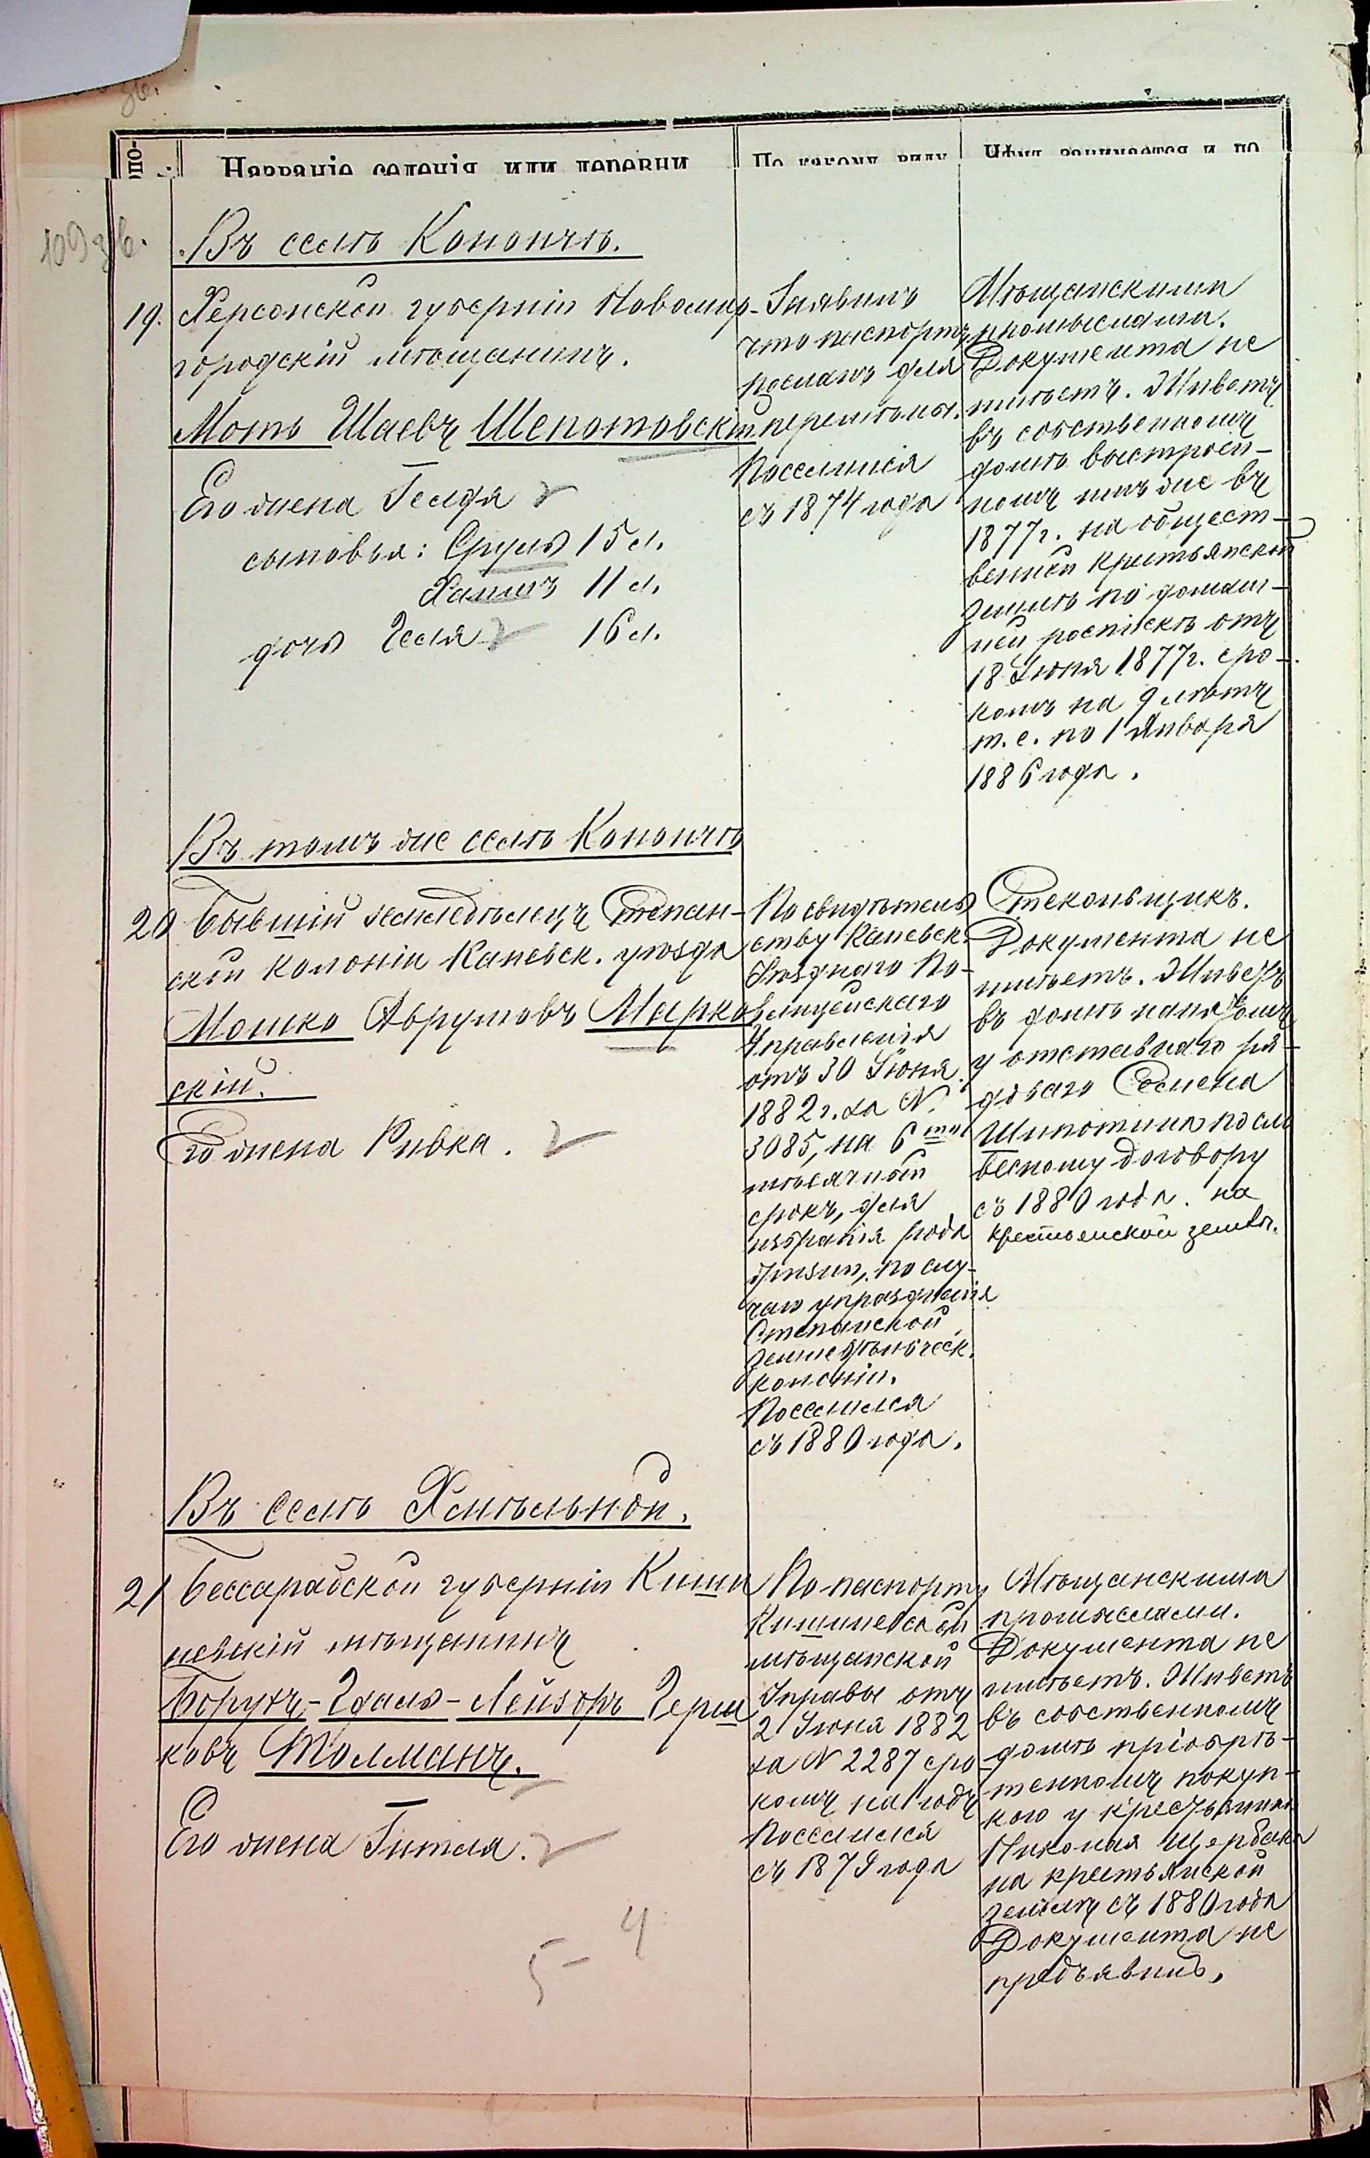 Названіе селенія или деревни
По какому виду
Чѣмъ занимается и по
109 зв.
Въ селѣ Конончѣ.
19. Херсонской губерніи Новомир-
городскій мѣщанинъ.
Моть Шаевъ Шепотовскій
Его жена Гелдя
сыновья: Сруль 15 л.
Хаимъ 11 л.
дочь Песля 16 л.
Заявилъ
что паспортъ
посланъ для
перемѣны.
Поселился
съ 1874 года
Мѣщанскими
промыслами.
Документа не
имѣетъ. Живетъ
въ собственномъ
домѣ выстроен-
номъ имъ же въ
1877 г. на общест-
венной крестьянской
землѣ по домаш-
ней роспискѣ отъ
18 Іюня 1877 г. сро-
комъ на 9 лѣтъ
т. е. по 1 Января
1886 года.
Въ томъ же селѣ Конончѣ
20 Бывшій земледѣлецъ Степан-
ской колоніи Каневск. уѣзда
Мошко Аврумовъ Марков
скій.
Его жена Ривка.
По свидѣтель
ству Каневск.
Уѣзднаго По-
лицейскаго
Управленія
отъ 30 Іюня
1882 г. за N.
3085, на 6 ти
мѣсячный
срокъ, для
избранія рода
жизни, по слу-
чаю упраздненія
Степанской
земледѣльческ.
колоніи.
Поселился
съ 1880 года.
Стекольщикъ.
Документа не
имѣетъ. Живетъ
въ домѣ нанятомъ
у отставнаго ря-
доваго Семена
Шипотина по сло
весному договору
съ 1880 года. на
крестьянской землѣ.
Въ селѣ Хмѣльной.
21 Бессарабской губерніи Киши
невскій мѣщанинъ
Борухъ-Эдаль-Лейзоръ Герш
ковъ Толманъ.
Его жена Гитля.
По паспорту
Кишиневской
мѣщанской
Управы отъ
2 Іюня 1882
за N 2287 сро
комъ на годъ
Поселился
съ 1879 года
Мѣщанскими
промыслами.
Документа не
имѣетъ. Живетъ
въ собственномъ
домѣ пріобрѣ-
тенномъ покуп-
кою у крестьянина
Николая Щербака
на крестьянской
землѣ съ 1880 года
Документа не
предъявилъ.
5 - 4